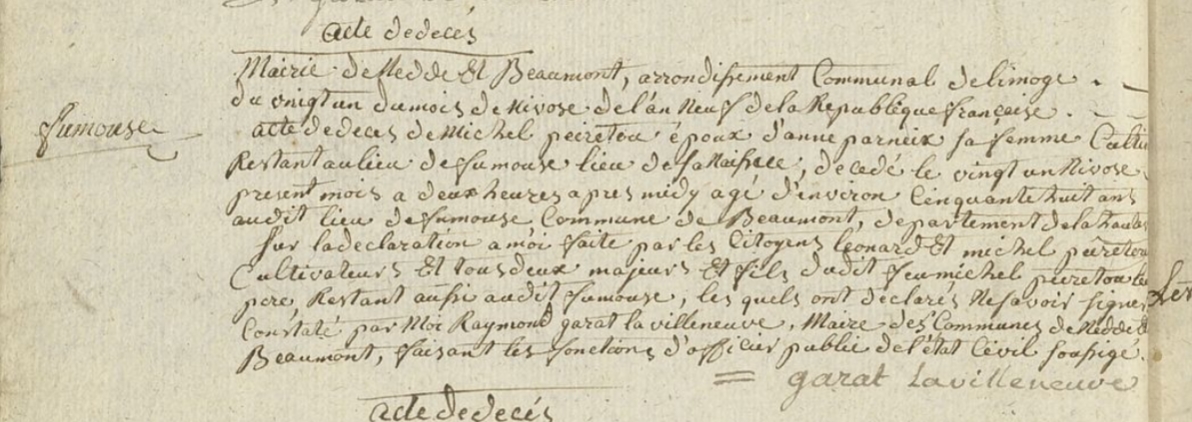 acte de decés
Mairie de Nedde Et Beaumont, arrondissement Communal de limoge
du vingt un du mois de Nivose de l'an Neuf de la Republique française
fumouse
acte de deces de Michel peiretou époux d'anne parneix sa femme Culti
Restant au lieu de fumouse lieu de sa Naissce, decedé le vingt un Nivose
present mois a deux heures apres midy agé d'environ Cinquante huit ans
audit lieu de fumouse Commune de Beaumont, departement de la haute
sur la declaration a moi faite par les Citoyens leonard Et michel peiretou
Cultivateurs Et tous deux majeurs Et fils dudit feu michel peiretou
pere, Restant aussi audit fumouse, les quels ont declarés Ne savoir signer
Constaté par Moi Raymond garat la villeneuve, Maire des Communes de Nedde
Beaumont, faisant les fonctions d'officier public de l'état Civil soussigé.
garat Lavilleneuve
acte de decés